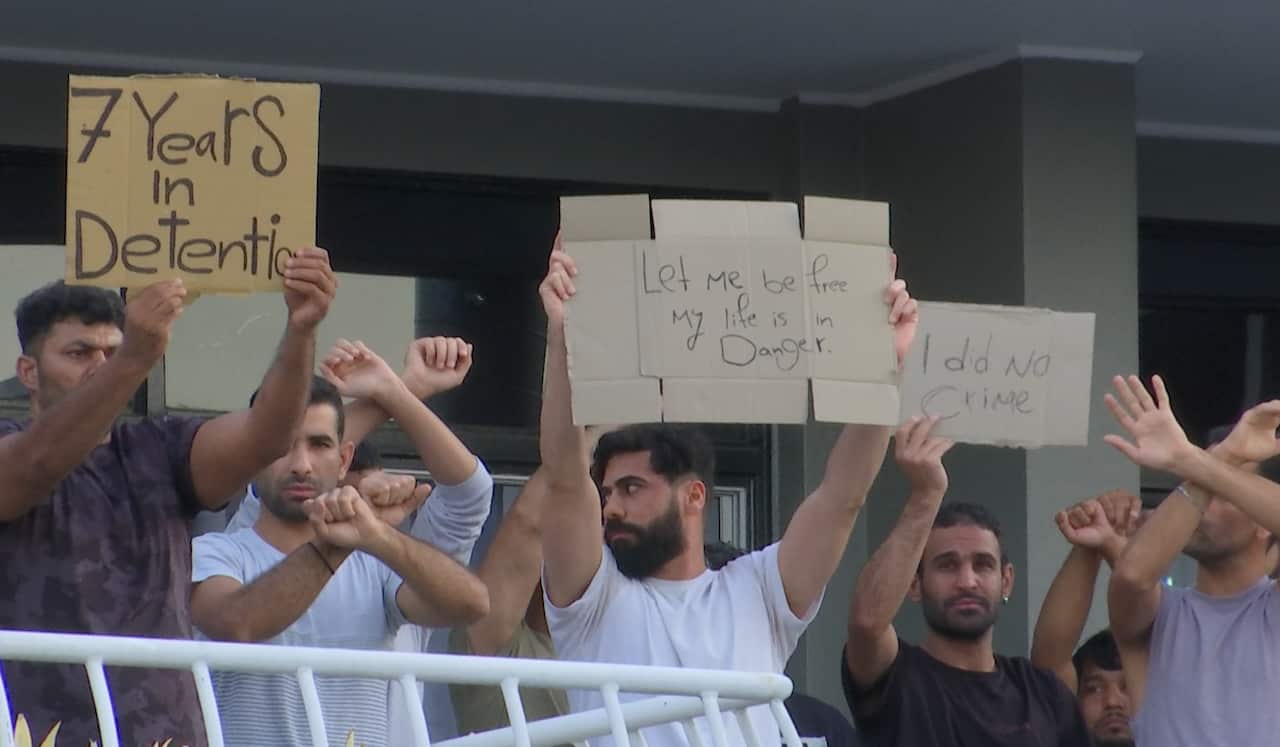 7 Years
In
Detentio
Let me be free
My life is in
Danger.
I did No
Crime